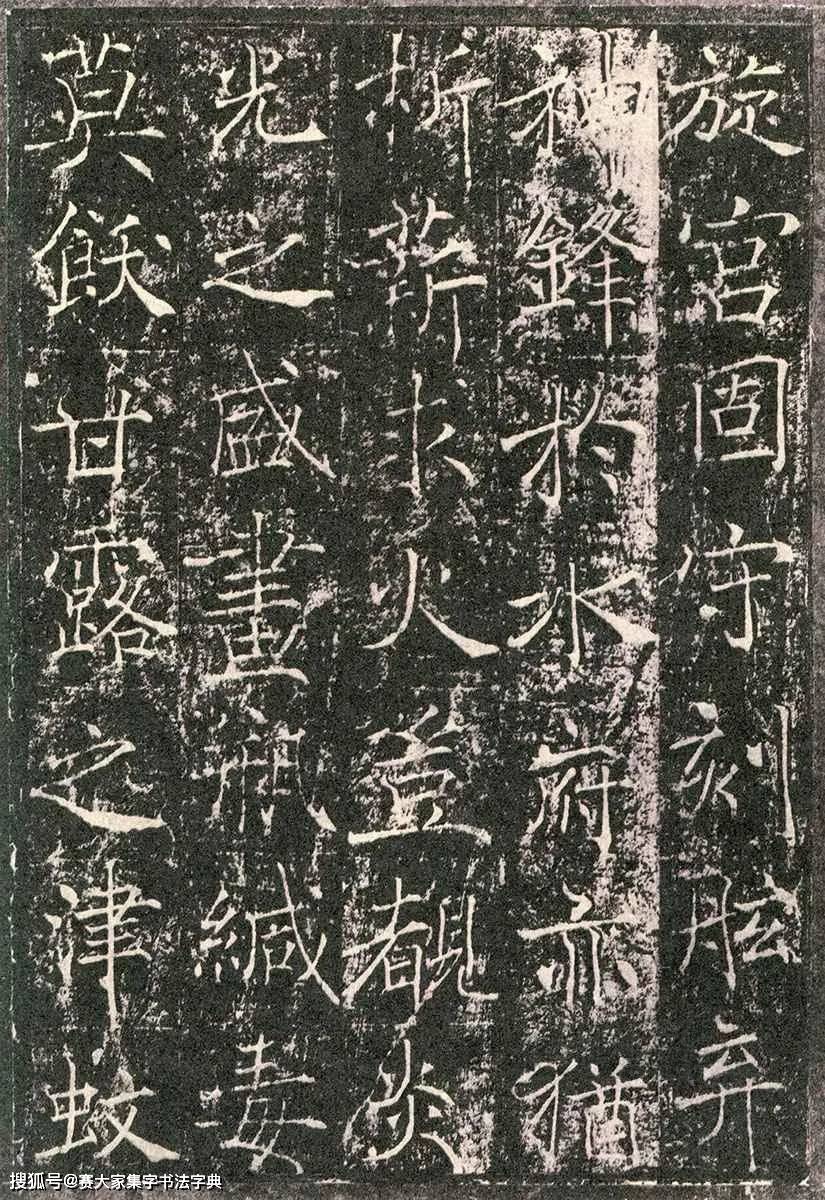 旋宮固守刻舷弃
神鋒扵水府亦猶
析薪求火豈覩炎
光之盛畫瓶緘毒
莫飫甘露之津蚊
搜狐号@赛大家集字书法字典